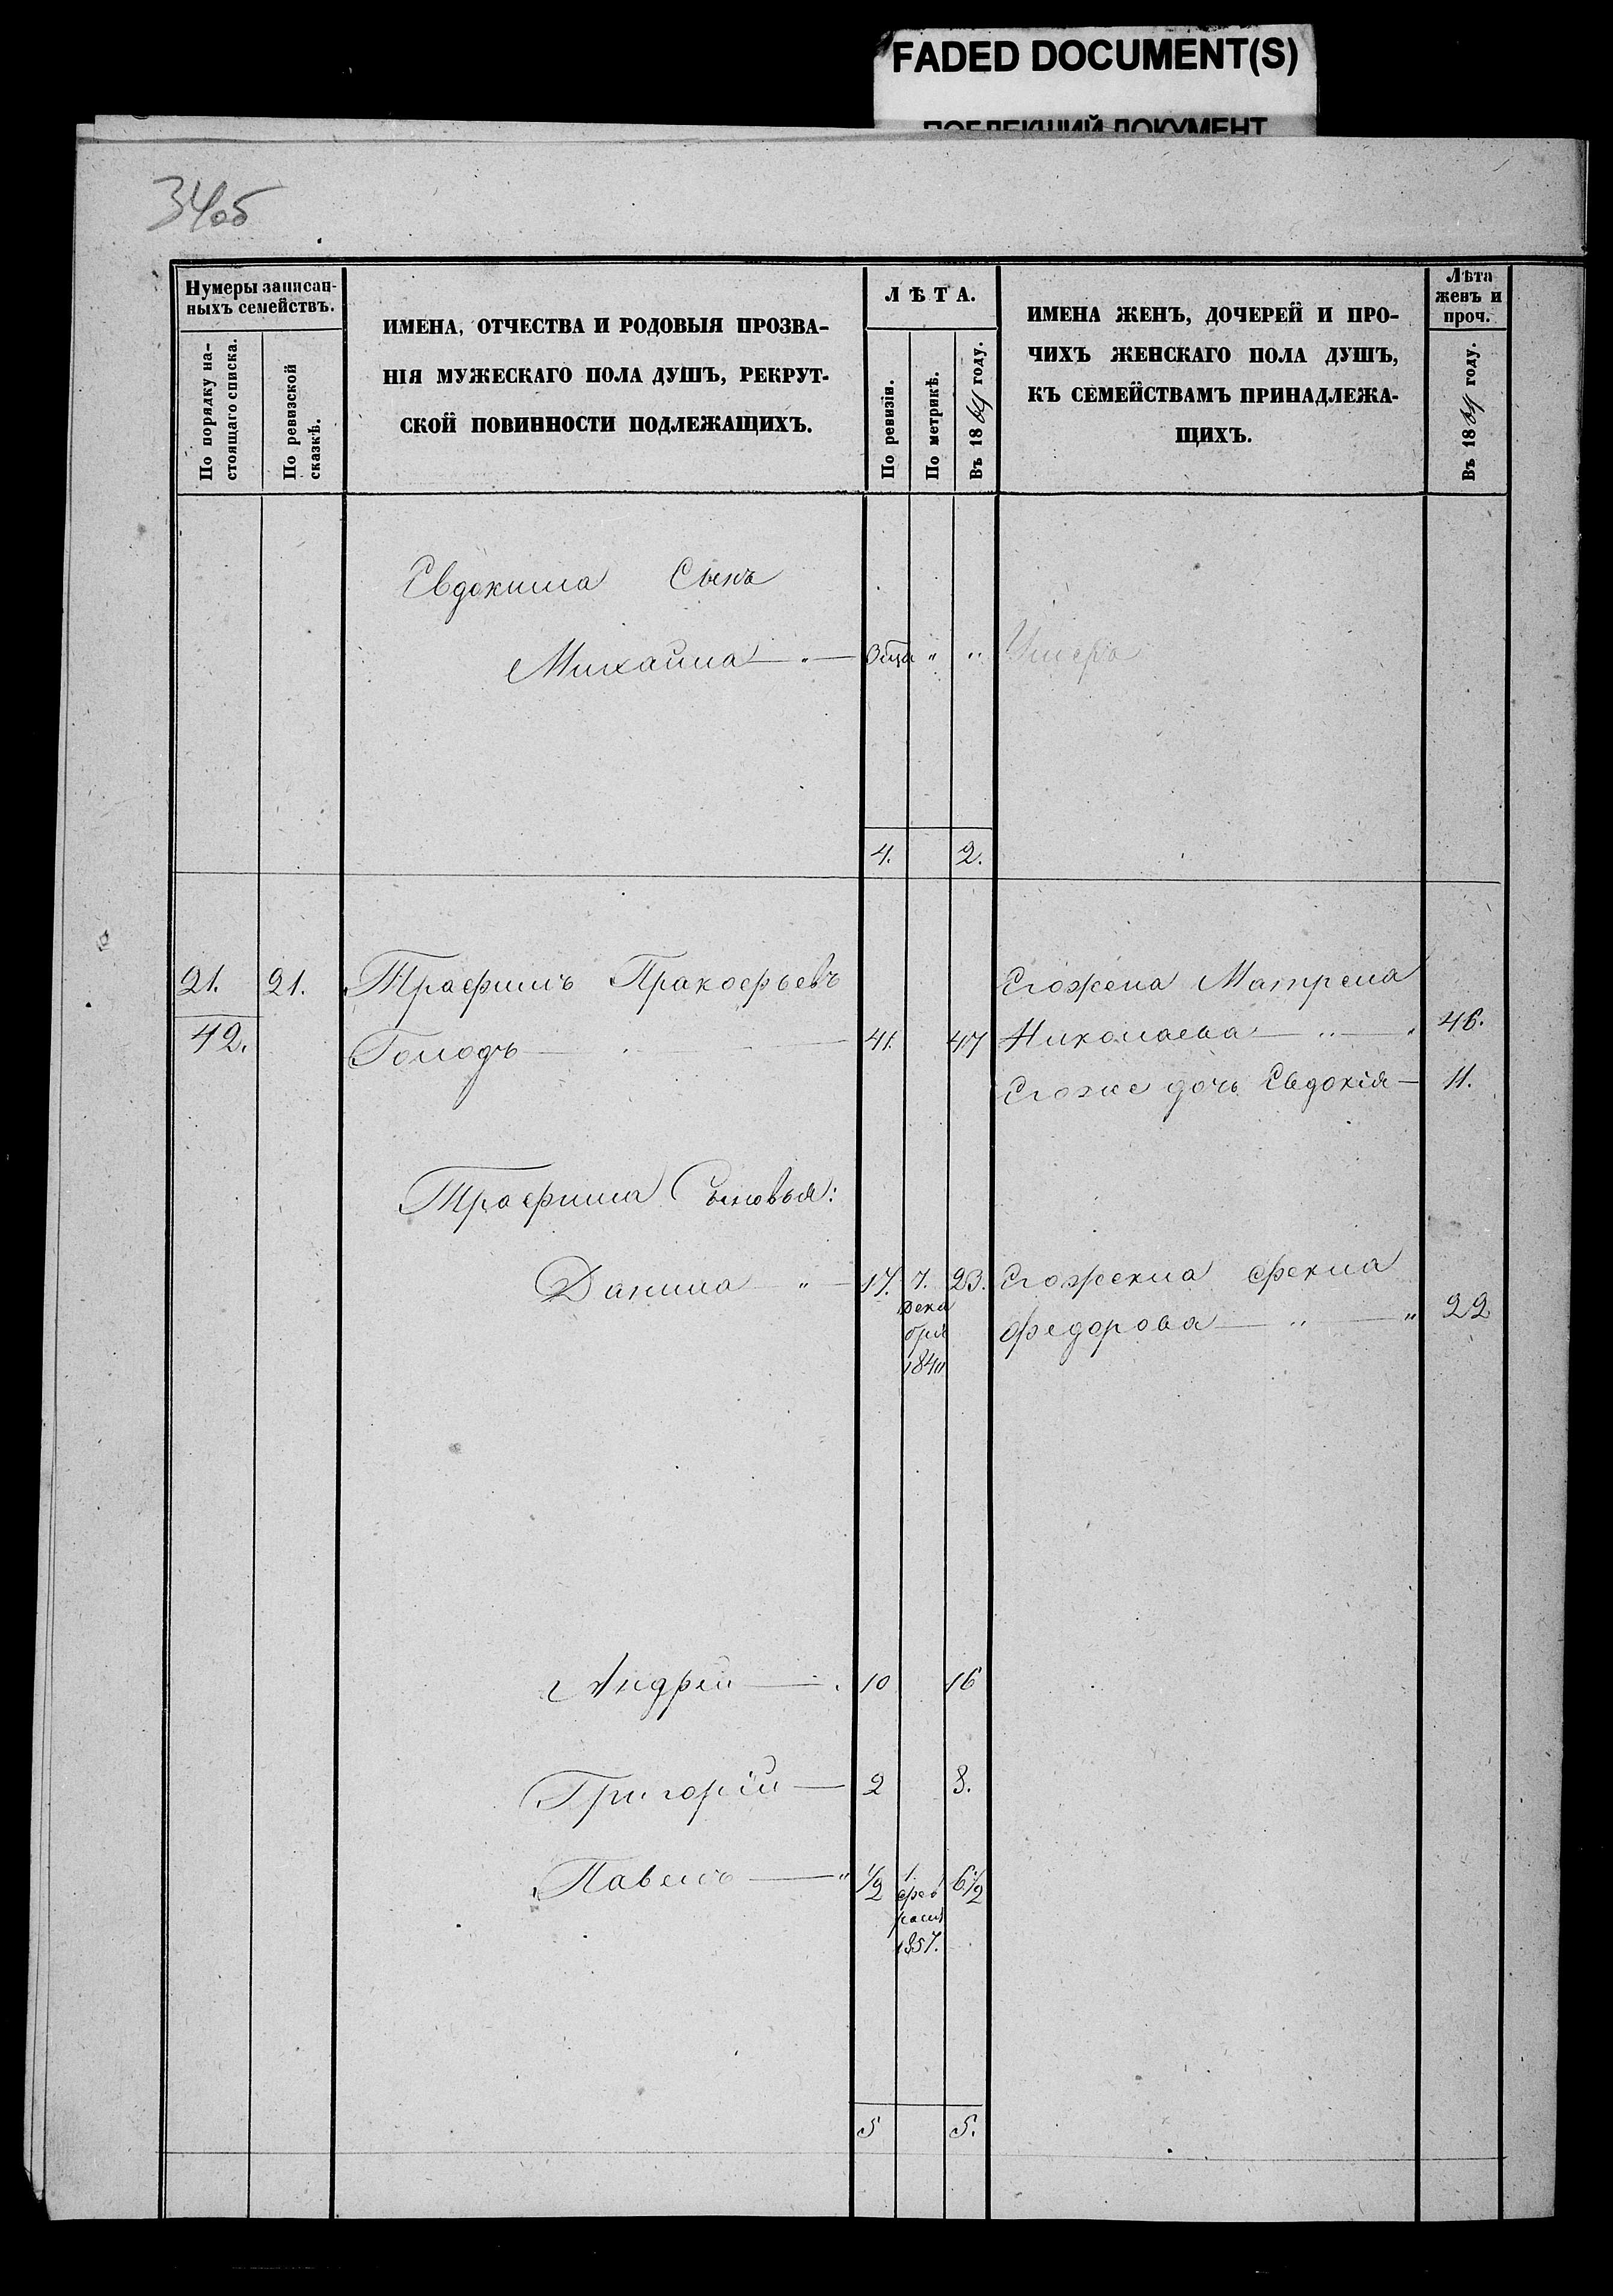 FADED DOCUMENT(S)
ПОБЛЕКШИЙ ДОКУМЕНТ
34об
Нумеры записан-
ныхъ семействъ.
По порядку на-
стоящаго списка.
По ревизской
сказкѣ.
ИМЕНА, ОТЧЕСТВА И РОДОВЫЯ ПРОЗВА-
НІЯ МУЖЕСКАГО ПОЛА ДУШЪ, РЕКРУТ-
СКОЙ ПОВИННОСТИ ПОДЛЕЖАЩИХЪ.
ЛѢТА.
По ревизіи.
По метрикѣ.
Въ 1864 году.
ИМЕНА ЖЕНЪ, ДОЧЕРЕЙ И ПРО-
ЧИХЪ ЖЕНСКАГО ПОЛА ДУШЪ,
КЪ СЕМЕЙСТВАМЪ ПРИНАДЛЕЖА-
ЩИХЪ.
Лѣта
женъ и
проч.
Въ 1864 году.
Евдокима Сынъ
Михайла — " — " " Умеръ
4. 2.
21. 21. Трафимъ Пракофьевъ Его жена Матрена
42. Голодъ — 41. 47 Николаева — " — " 46.
Егоже дочь Евдокія — 11.
Трафима Сыновья:
Данила — " — 17. 7. 23. Его жена Фекла
дека
бря Федорова — " — " 22
184
Андрей — 10 16
Григорій — 2 8.
Павелъ — " 1/2 1 6 1/2
фев
раля
1857.
5 5.